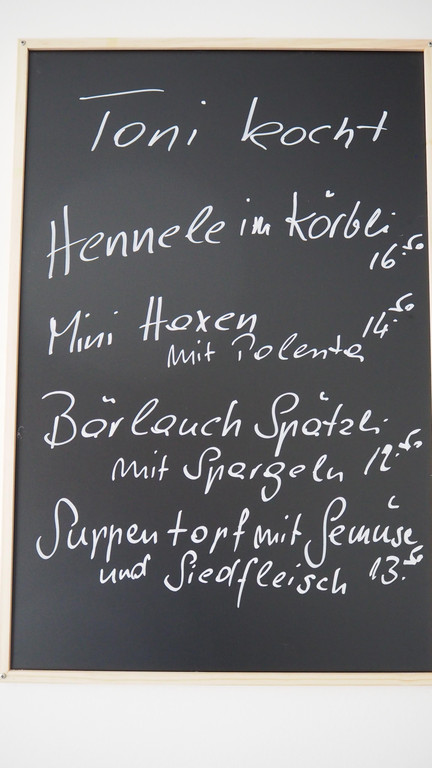 Toni kocht
Hennele im Körbli
16.50
Mini Haxen 14.50
mit Polenta
Bärlauch Spätzli
mit Spargeln 12.50
Suppentopf mit Gemüse
und Siedfleisch 13.50